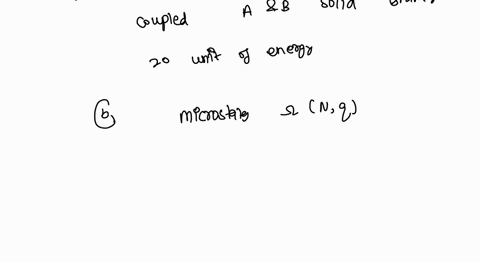 coupled A & B solid
20 unit of energy
(b) microstates Ω (N, q)